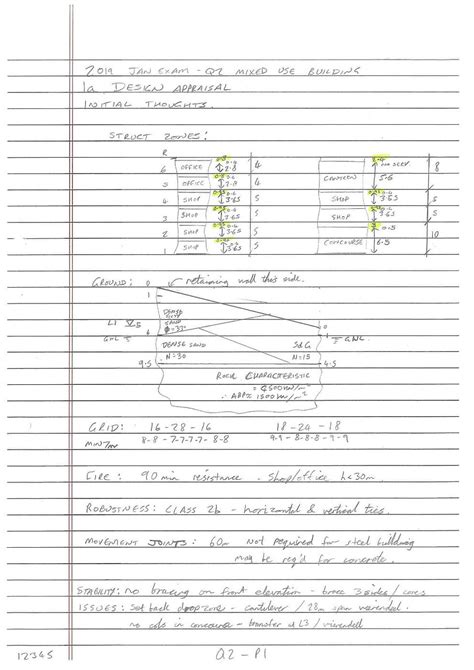 2019 JAN EXAM - Q2 MIXED USE BUILDING
1a DESIGN APPRAISAL
INITIAL THOUGHTS.
STRUCT ZONES:
R
6 OFFICE 4 8
5 OFFICE 4 CANTEEN
4 SHOP 3.65 5 SHOP 3.65 5
3 SHOP 3.65 5 SHOP 3.65 5
2 SHOP 3.65 5 10
1 SHOP 3.65 5 CONCOURSE 6.5
GROUND: 0 retaining wall this side.
1
DENSE
SAND
0
L1 5
GWL 6 1 GWL
DENSE SAND S&G
N=30 N=15
9.5 4.5
ROCK CHARACTERISTIC
∴ ABP= 1500 kN/m²
GRID: 16-28-16 18-24-18
8-8-7-7-7-7-8-8 9-9-8-8-8-9-9
FIRE: 90 min resistance - shop/office h<30m.
ROBUSTNESS: CLASS 2b - horizontal & vertical ties.
MOVEMENT JOINTS: 60m not required for steel building
may be req'd for concrete.
STABILITY: no bracing on front elevation - brace 3 sides / cores
ISSUES: Set back drop zone - cantilever / 28m span vierendeel.
no cols in concourse - transfer at L3 / vierendeel
12345 Q2-P1